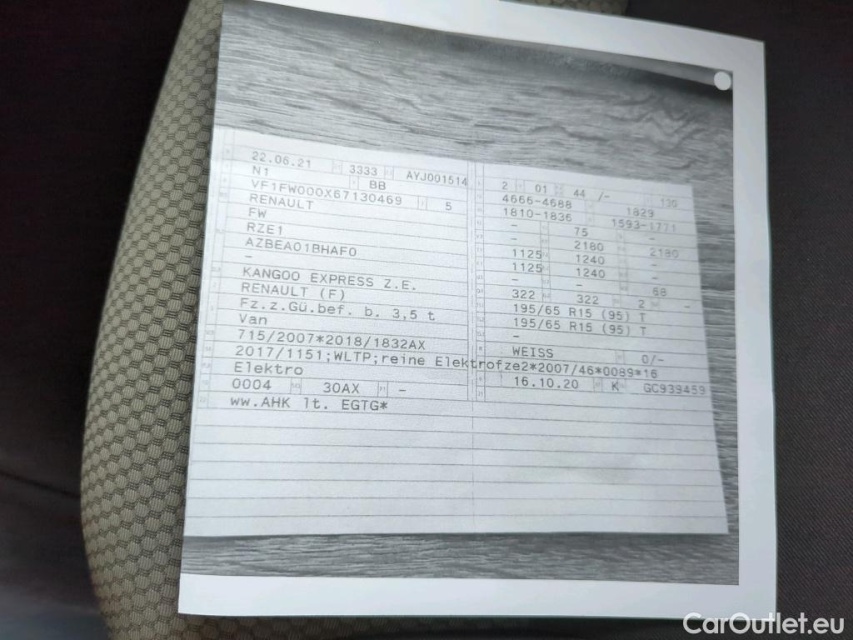 22.06.21 3333 AYJ001514
N1 BB
VF1FW000X67130469 5
RENAULT
FW
RZE1
AZBEA01BHAF0
-
KANGOO EXPRESS Z.E.
RENAULT (F)
Fz.z.Gü.bef. b. 3,5 t
Van
715/2007*2018/1832AX
2017/1151;WLTP;reine Elektrofze2*2007/46*0089*16
Elektro
0004 30AX -
ww.AHK lt. EGTG*
2 01 44 /- 130
4666-4688 1829
1810-1836 1593-1771
- 75 -
- 2180 2180
1125 1240 -
1125 1240 -
- - 68
322 322 2 -
195/65 R15 (95) T
195/65 R15 (95) T
-
WEISS 0/-
16.10.20 K GC939459
CarOutlet.eu